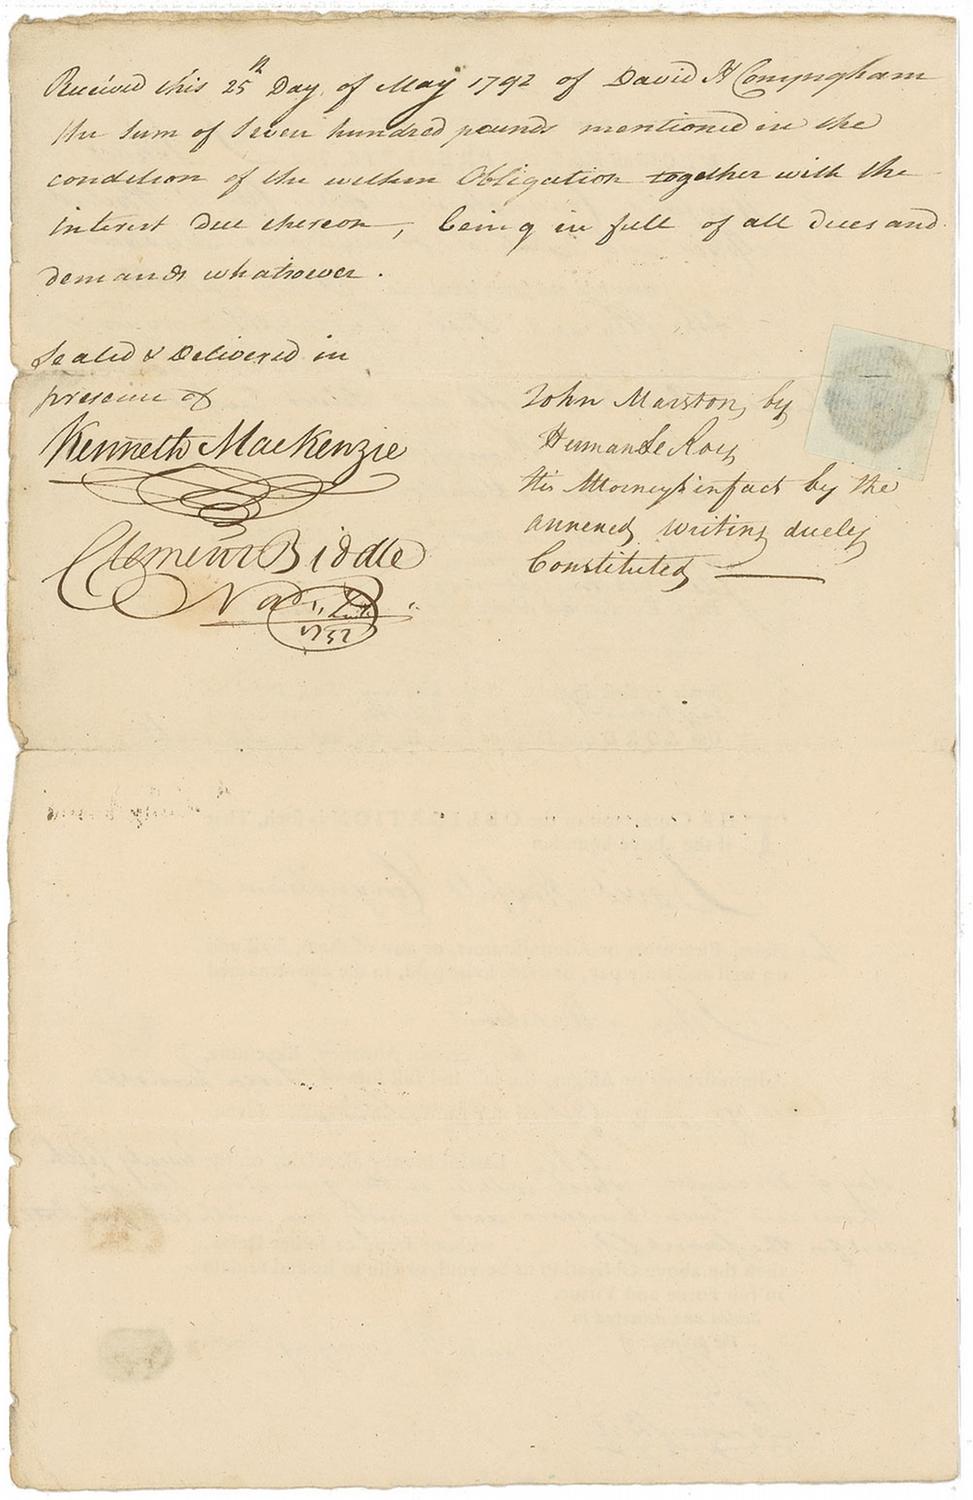 Received this 25th Day of May 1792 of David H Conyngham
the Sum of Seven hundred pounds mentioned in the
condition of the within Obligation together with the
interest Due thereon, being in full of all dues and
demands whatsoever.
Sealed & Delivered in
presence of
Kenneth MacKenzie
Clement Biddle
1792
John Marston, by
Herman Le Roy
His Attorney in fact by the
annexed writing duely
Constituted